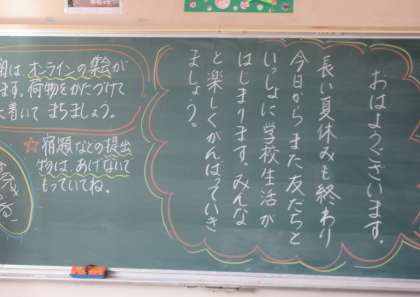 おはようございます。
長い夏休みも終わり
今日からまた友だちと
いっしょに学校生活が
はじまります。みんな
と楽しくがんばっていき
ましょう。
は、オンラインの集会が
ます。荷物をかたづけて
着いてまちましょう。
☆宿題などの提出
物は、あけないで
もっていてね。